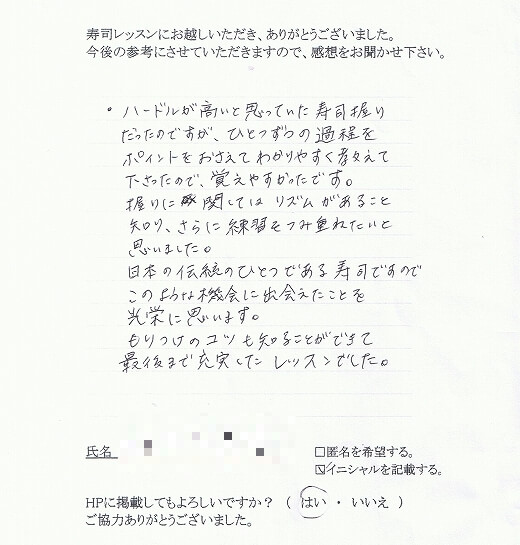 寿司レッスンにお越しいただき、ありがとうございました。
今後の参考にさせていただきますので、感想をお聞かせ下さい。
・ハードルが高いと思っていた寿司握り
だったのですが、ひとつずつの過程を
ポイントをおさえてわかりやすく教えて
下さったので、覚えやすかったです。
握りに関してはリズムがあること
知り、さらに練習をつみ重ねたいと
思いました。
日本の伝統のひとつである寿司ですので
このような機会に出会えたことを
光栄に思います。
もりつけのコツも知ることができて
最後まで充実したレッスンでした。
氏名
□匿名を希望する。
☑イニシャルを記載する。
HPに掲載してもよろしいですか？（ はい ・ いいえ ）
ご協力ありがとうございました。